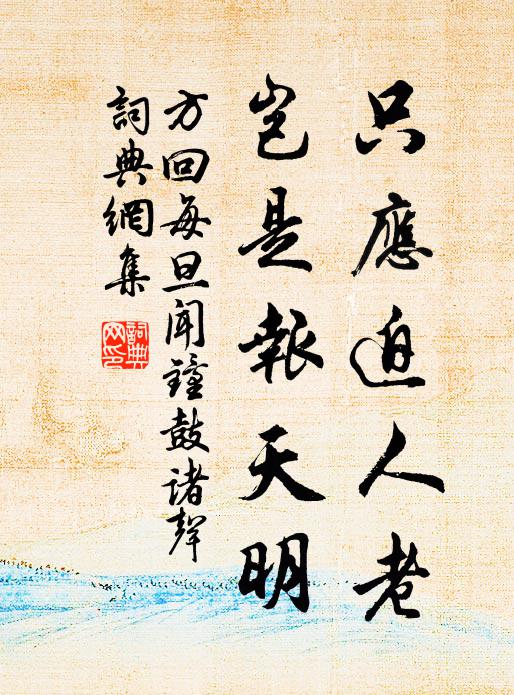 只應迫人老
豈是報天明
方回每旦聞鐘鼓诸聲
詞典網集
詞典網印